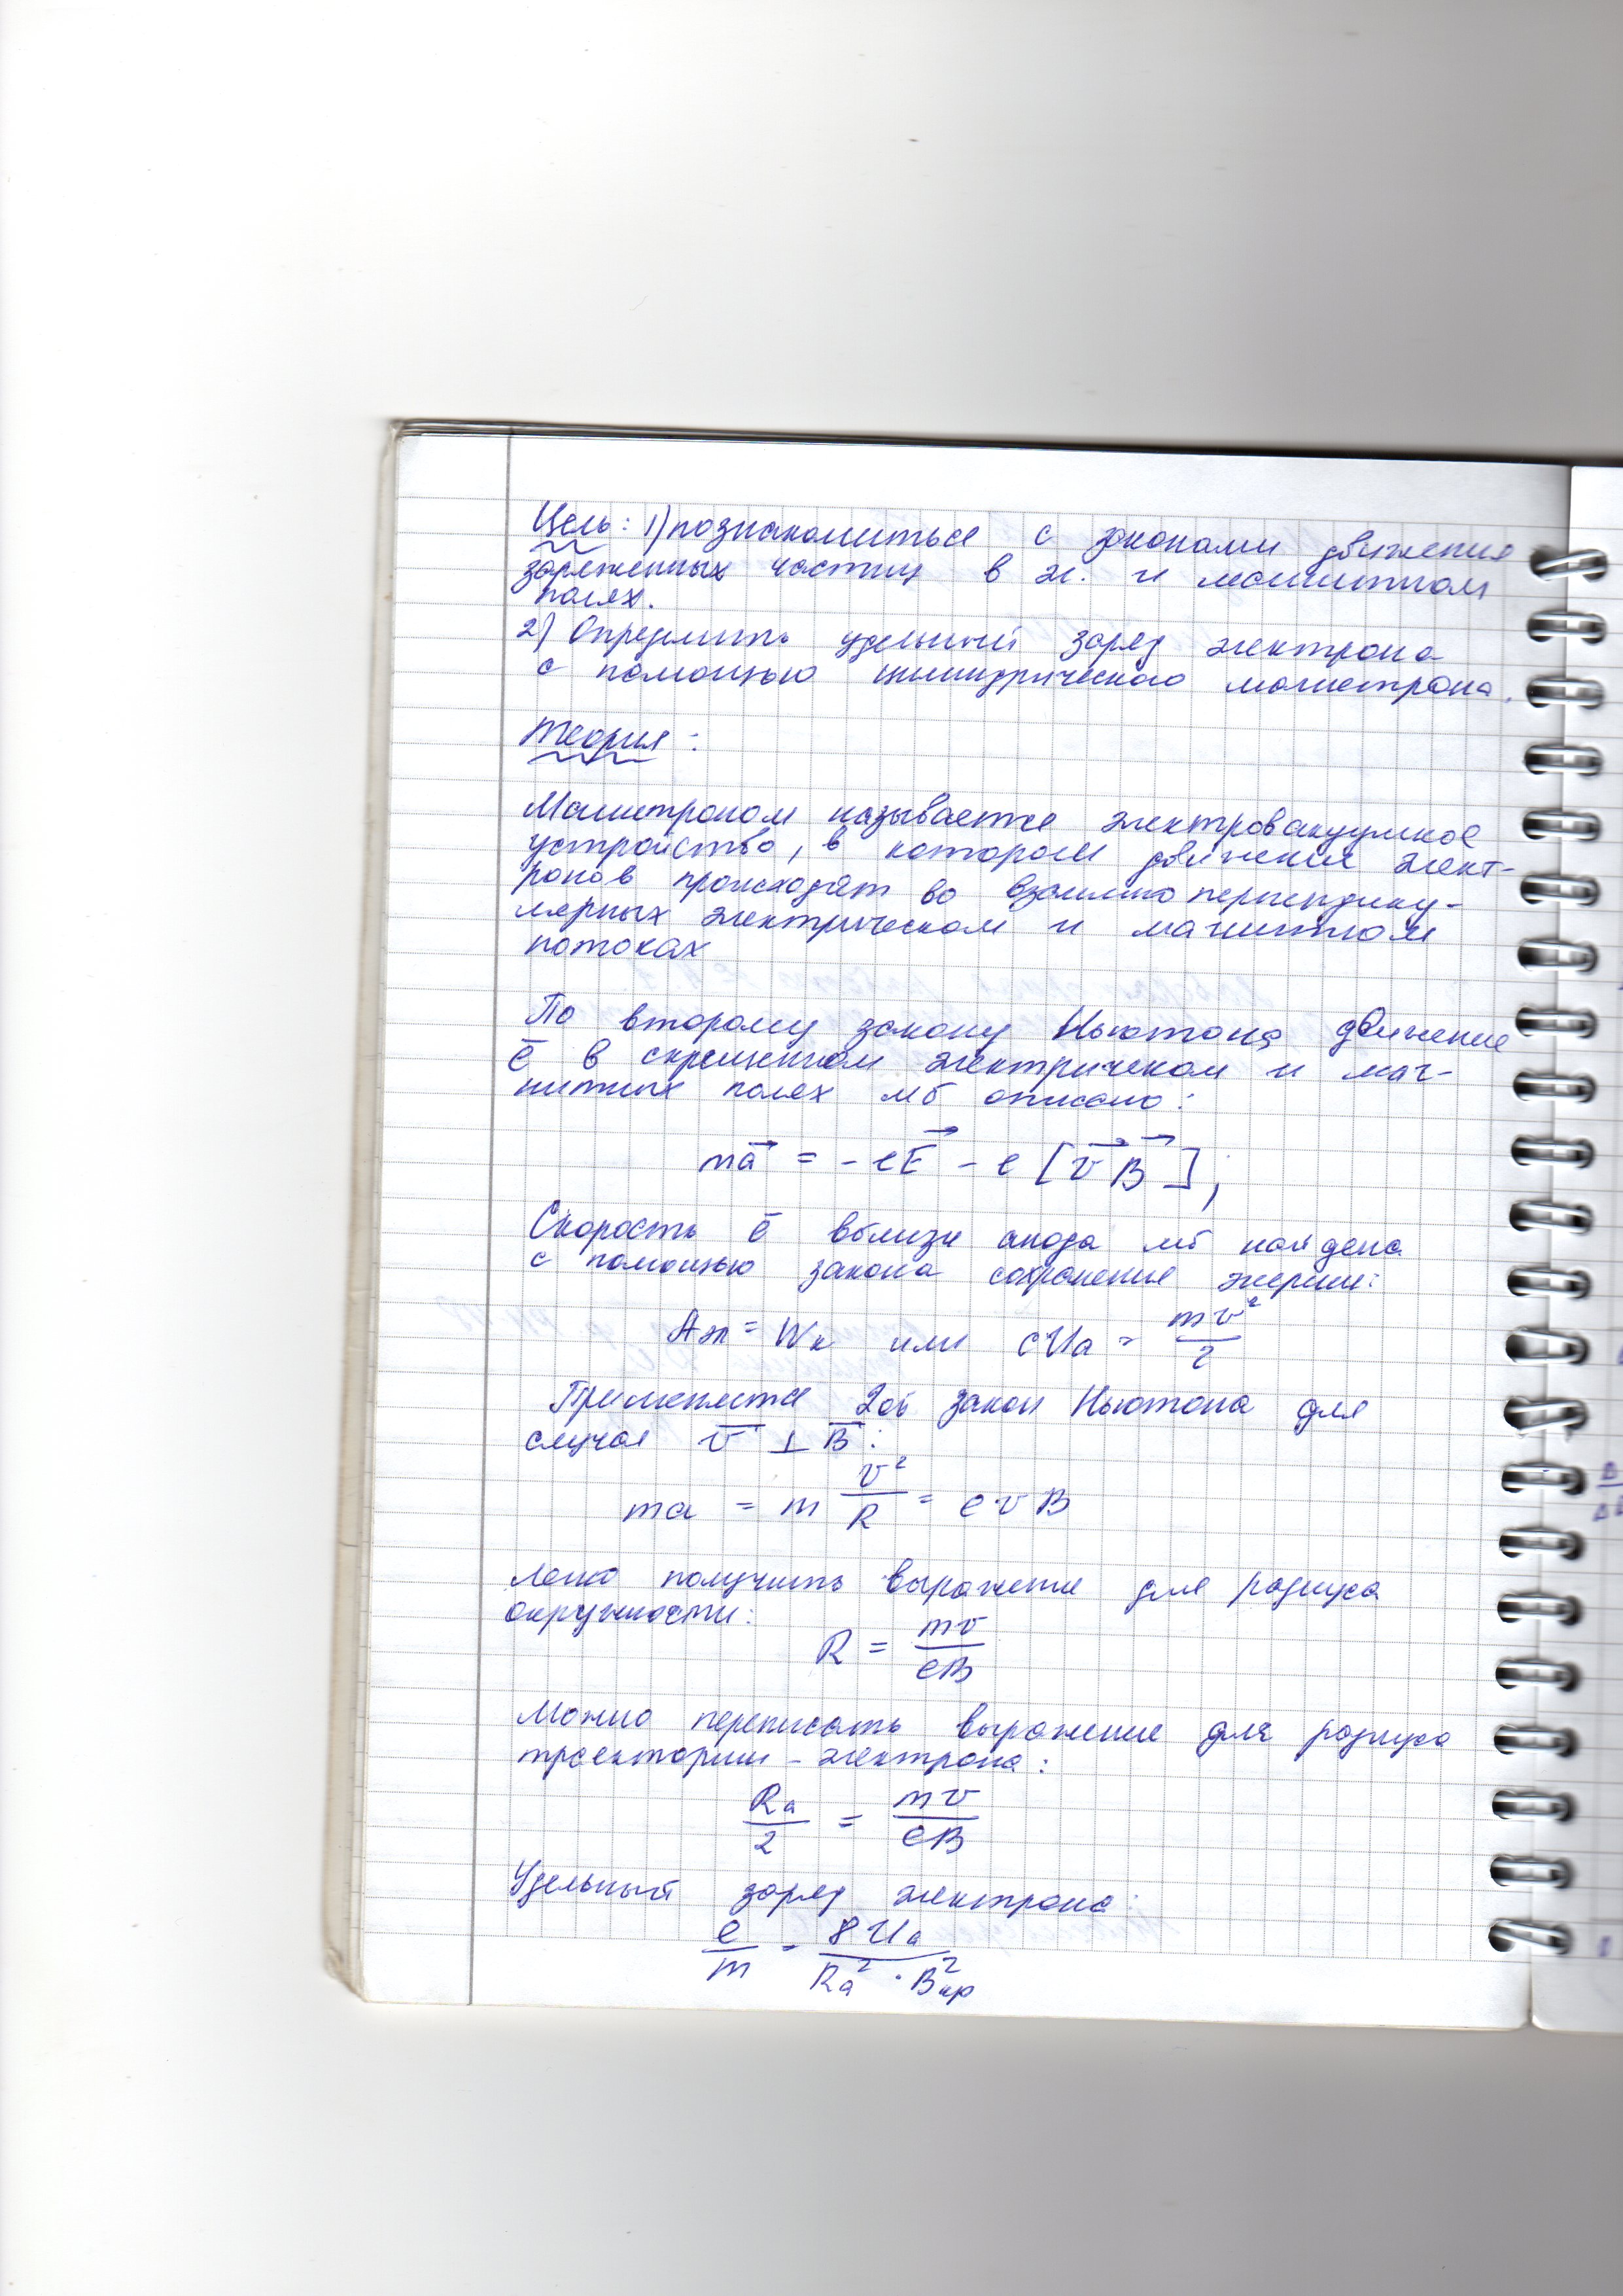 Цель: 1) познакомиться с законами движения
заряженных частиц в эл. и магнитном
полях.
2) Определить удельный заряд электрона
с помощью цилиндрического магнетрона.
Теория:
Магнетроном называется электровакуумное
устройство, в котором движения элект-
ронов происходят во взаимно перпендику-
лярных электрическом и магнитном
потоках
По второму закону Ньютона движение
ē в скрещенном электрическом и маг-
нитных полях мб описано:
ma⃗ = -eE⃗ - e[v⃗ B⃗];
Скорость ē вблизи анода мб найдена
с помощью закона сохранения энергии:
Aэл = Wк или eUa = mv²/2
Применяется 2ой закон Ньютона для
случая v̄ ⊥ B̄:
ma = m v²/R = evB
Легко получить выражение для радиуса
окружности:
R = mv/eB
Можно переписать выражение для радиуса
траектории - электрона:
Ra/2 = mv/eB
Удельный заряд электрона:
e/m = 8Ua/Ra² · B²кр